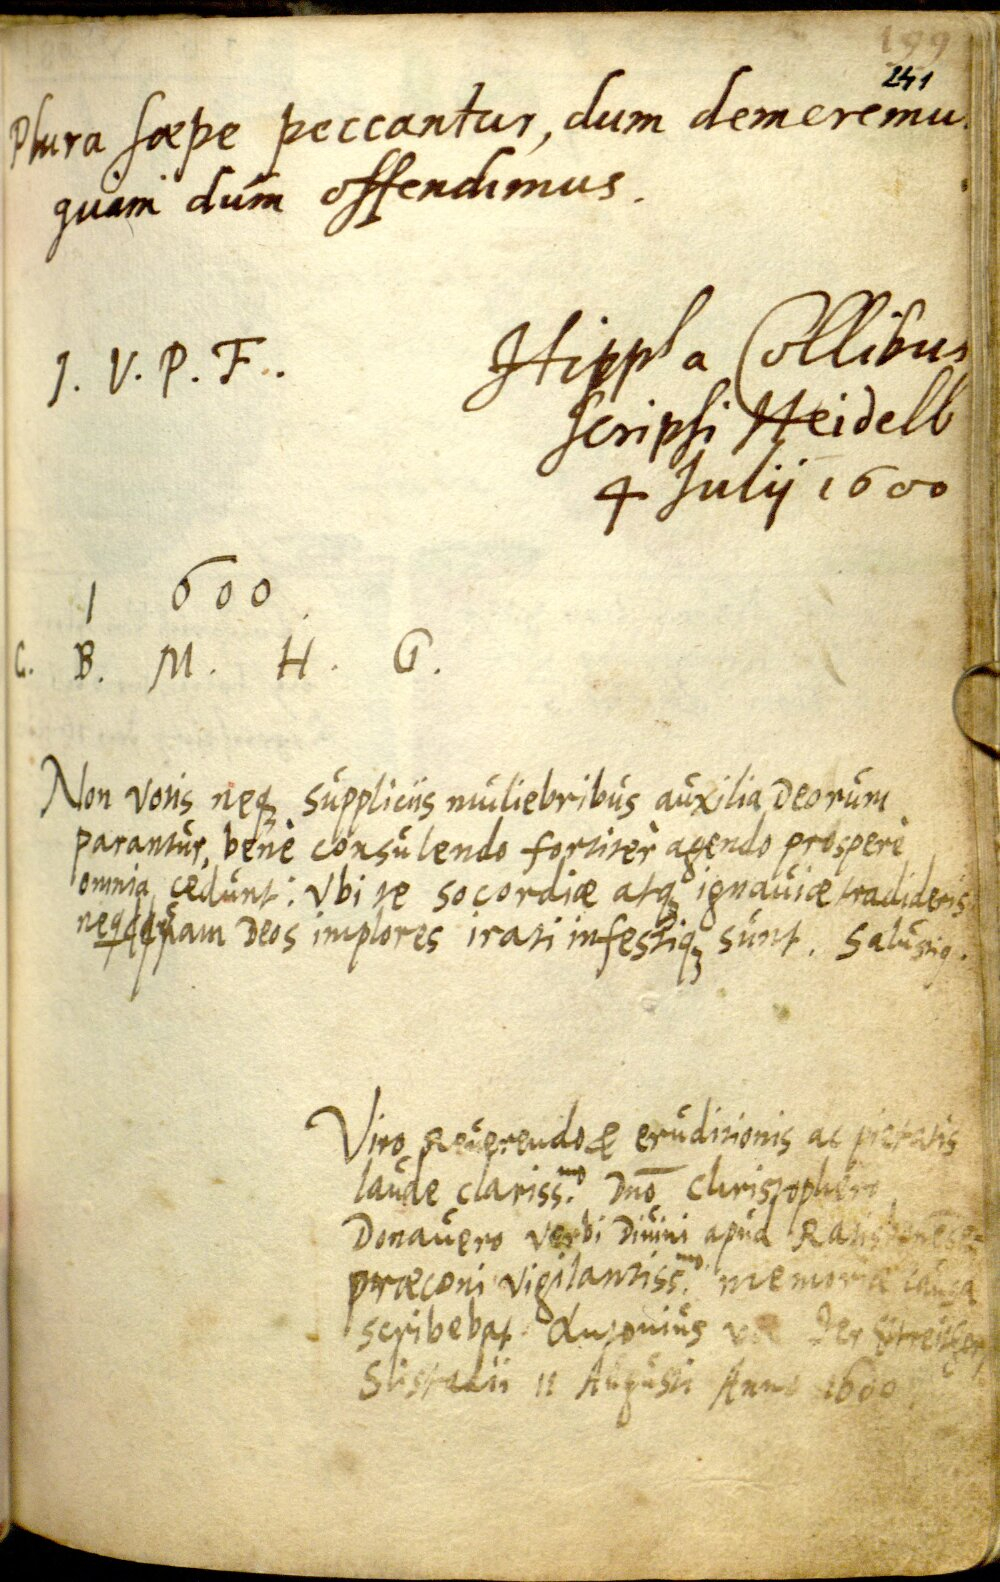 199
241
Plura sæpe peccantur, dum demeremu
quam dum offendimus.
J. V. P. F.
Hippl a Collibus
scripsi Heidelb
4 Julij 1600
1 600
C. B. M. H. G.
Non votis neq₃ suppliciis muliebribus auxilia Deorum
parantur, benè consulendo fortitèr agendo prosperè
omnia cedunt: Vbi te socordiæ atq₃ ignauiæ tradideris
nequam Deos implores irati infestiq₃ sunt. Salustiꝰ.
Viro Reuerendo & eruditionis ac pietatis
laude clariss.mo Dno Christophero
Donauero verbi Diuini apud Ratisbonense=
præconi vigilantiss.mo memoriæ causa
scribebat Antonius Streither
Slistadii 11 Augusti Anno 1600